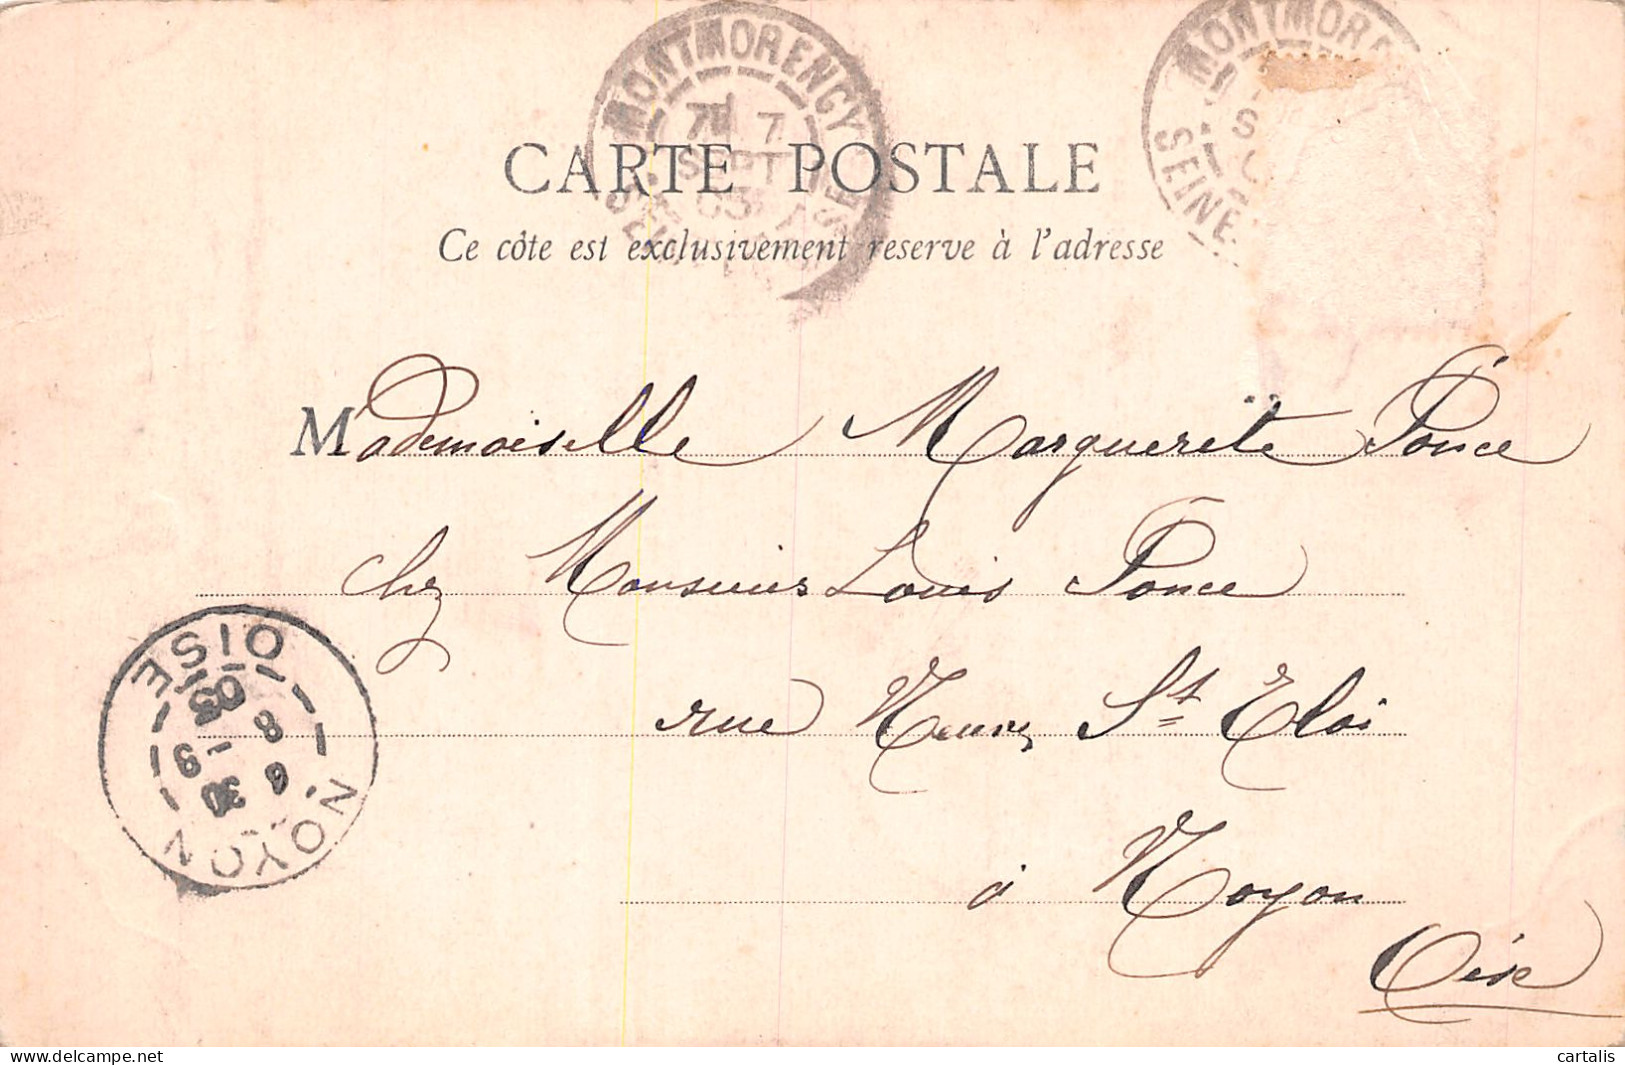 MONTMORENCY
7 SEPT 03
SEINE
MONTMOR
SEINE
CARTE POSTALE
Ce côte est exclusivement reserve à l'adresse
Mademoiselle Marguerite Ponce
chez Monsieur Louis Ponce
rue St Eloi
à Noyon
Oise
NOYON
OISE
6 30
8 - 9
03
cartalis
delcampe.net